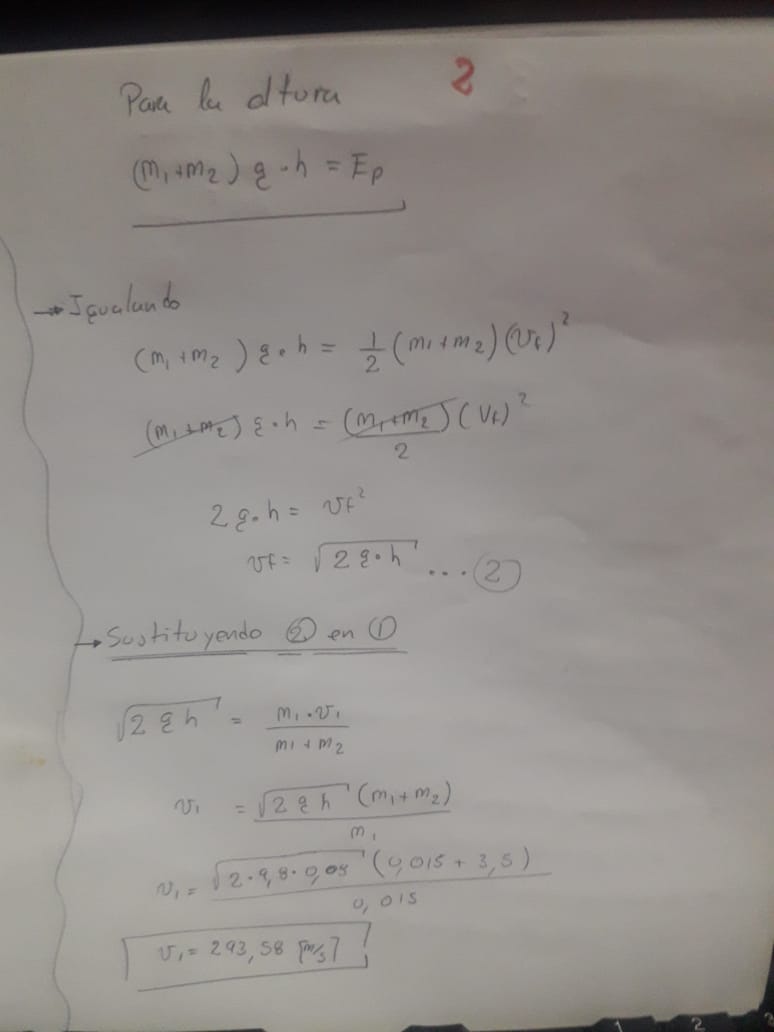 2
Para la altura
(m₁+m₂) g·h = Ep
→ Igualando
(m₁+m₂) g·h = 1/2 (m₁+m₂)(Vf)²
(m₁+m₂) g·h = (m₁+m₂)/2 (Vf)²
2g·h = Vf²
Vf = √2g·h ...②
→ Sustituyendo ② en ①
√2gh = m₁·v₁/m₁+m₂
v₁ = √2gh (m₁+m₂)/m₁
v₁ = √2·9,8·0,08 (0,015 + 3,5)/0,015
v₁ = 293,58 [m/s]
1 2